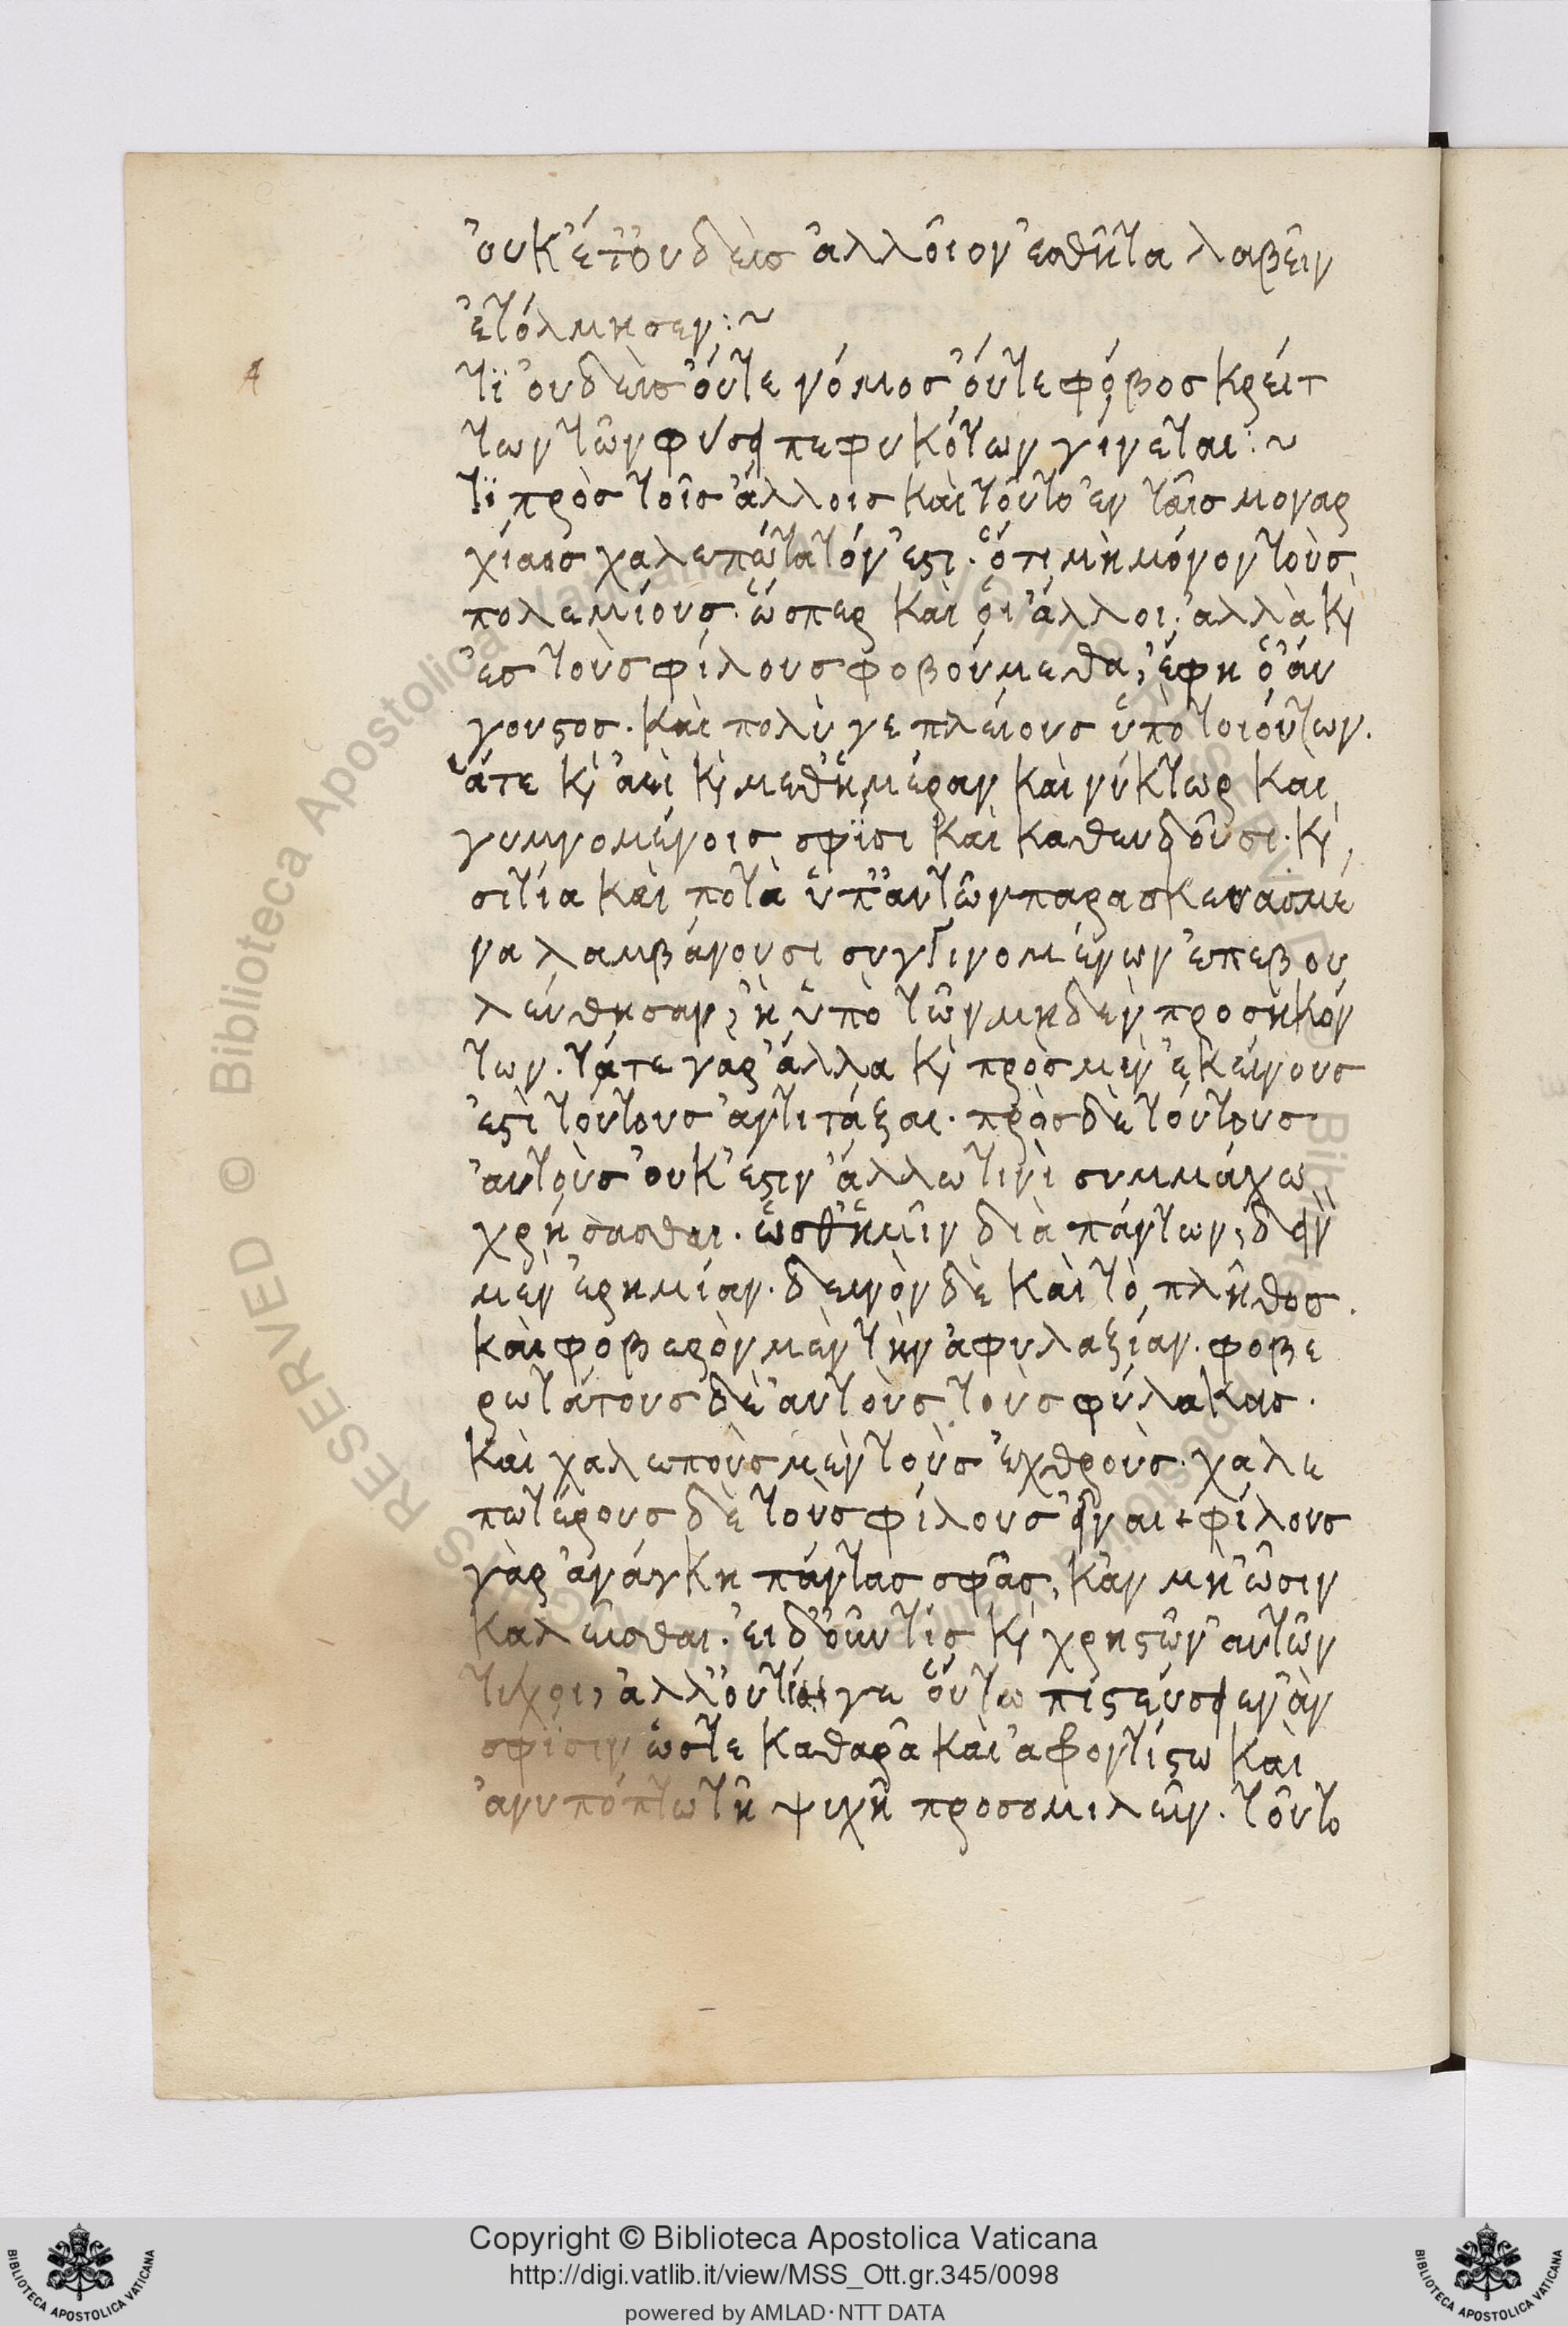 οὐκέτ' οὐδεὶσ ἀλλοῖον ἐσθῆτα λαβεῖν
ἐτόλμησεν :~
A
τϊ οὐδεὶσ οὔτε νόμοσ οὔτε φόβοσ κρείτ
των τῶν φύσει πεφυκότων γίνεται :~
τϊ πρὸσ τοῖσ ἄλλοισ καὶ τοῦτο ἐν ταῖσ μοναρ
χίαισ χαλεπώτατόν ἐστι · ὅτι μὴ μόνον τοὺσ
πολεμίουσ · ὥσπερ καὶ ὁι ἄλλοι · ἀλλὰ κ̀
ἐσ τοὺσ φίλουσ φοβούμεθα, ἔφη ὁ ἄυ
γουστοσ · καὶ πολὺ γε πλείουσ ὑπὸ τοιούτων ·
ἅτε κ̀ ἀεὶ κ̀ μεθ' ἡμέραν καὶ νύκτωρ καὶ
γυμνομένοισ σφΐσι καὶ καθευδοῦσι · κ̀
σιτία καὶ ποτὰ ὑπ' αυτῶν παρασκευασμέ
να λαμβάνουσι συγγινομένων ἐπεβου
λεύθησαν, ἢ ὑπὸ τῶν μηδὲν προσηκόν
των · τάτε γὰρ ἄλλα κ̀ πρὸσ μὲν ἐκείνουσ
ἐστὶ τούτουσ ἀντιτάξαι · πρὸσ δὲ τούτουσ
ἀυτοὺσ οὐκ ἔστιν ἄλλω τινὶ συμμάχω
χρήσασθαι · ὥσθ' ἡμῖν διὰ πάντων, δειν̀
μὲν ἐρημίαν · δεινὸν δὲ καὶ τὸ πλῆθοσ ·
καὶ φοβερὸν μὲν τὴν ἀφυλαξίαν · φοβε
ρωτάτουσ δὲ ἀυτοὺσ τοὺσ φύλακασ ·
καὶ χαλεποὺσ μὲν τοὺσ ἐχθροὺσ · χαλε
πωτέρουσ δὲ τοὺσ φίλουσ εἶναι + φίλουσ
γὰρ ἀνάγκη πάντασ σφᾶσ, κἂν μὴ ὦσιν
καλεῖσθαι · ἐι δ' οὖν τίσ κ̀ χρηστῶν ἀυτῶν
τύχοι, ἀλλ' οὔτι γε ὅυτω πιστεύσειεν ἂν
σφίσιν ὥστε καθαρᾶ καὶ ἀφροντίστω καὶ
ἀνυπόπτω τῆ ψυχῆ προσομιλεῖν · τοῦτο
Copyright © Biblioteca Apostolica Vaticana
http://digi.vatlib.it/view/MSS_Ott.gr.345/0098
powered by AMLAD · NTT DATA